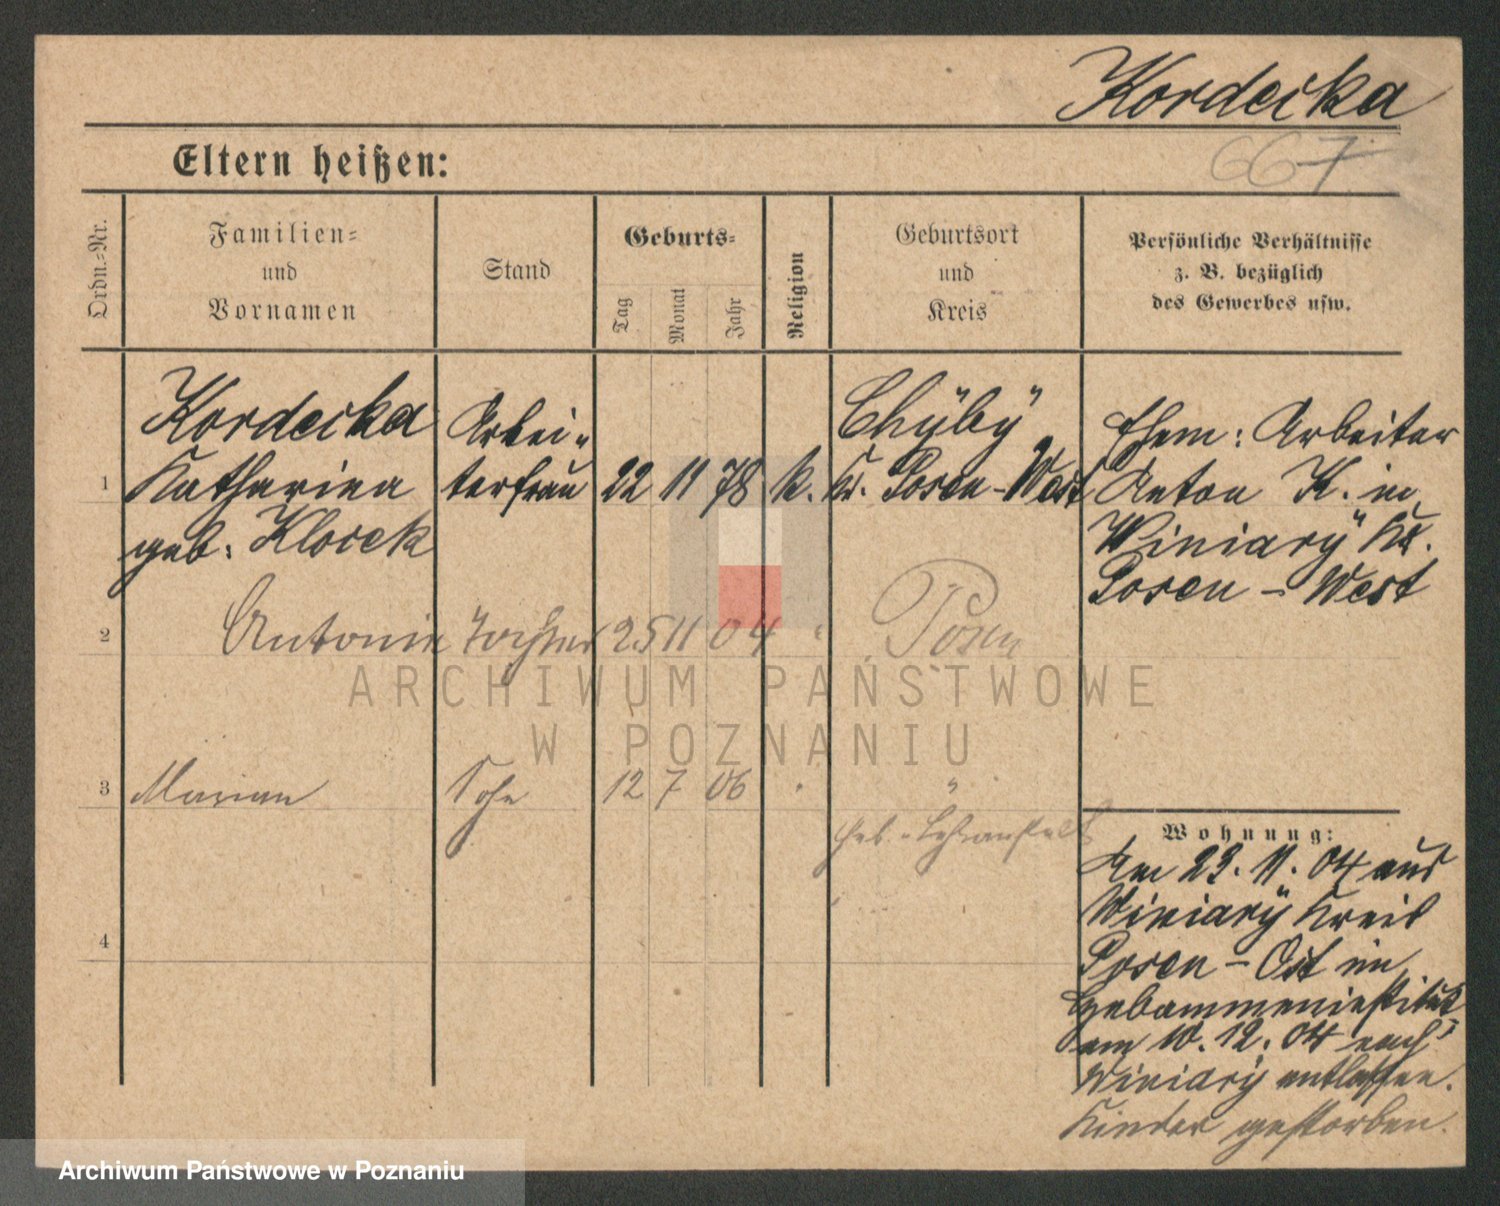 Kordecka
667
Eltern heißen:
Ordn.-Nr.
Familien-
und
Vornamen
Stand
Geburts-
Tag
Monat
Jahr
Religion
Geburtsort
und
Kreis
Persönliche Verhältnisse
z. B. bezüglich
des Gewerbes usw.
1
Kordecka
Katharina
geb. Klosek
Arbei-
terfrau
22 11 78
k.
Chÿbÿ
Kr. Posen-West
Ehem: Arbeiter
Anton K. in
Winiarÿ Kr.
Posen - West
2
Antonie
Tochter
25 11 04
"
Posen
3
Marian
Sohn
12 7 06
"
"
Heb.-Lehranstalt
4
Wohnung:
Am 23. 11. 04 aus
Winiarÿ Kreis
Posen - Ost im
Hebammeninstitut
am 10. 12. 04 nach
Winiarÿ entlassen.
Kinder gestorben.
ARCHIWUM PAŃSTWOWE
W POZNANIU
Archiwum Państwowe w Poznaniu